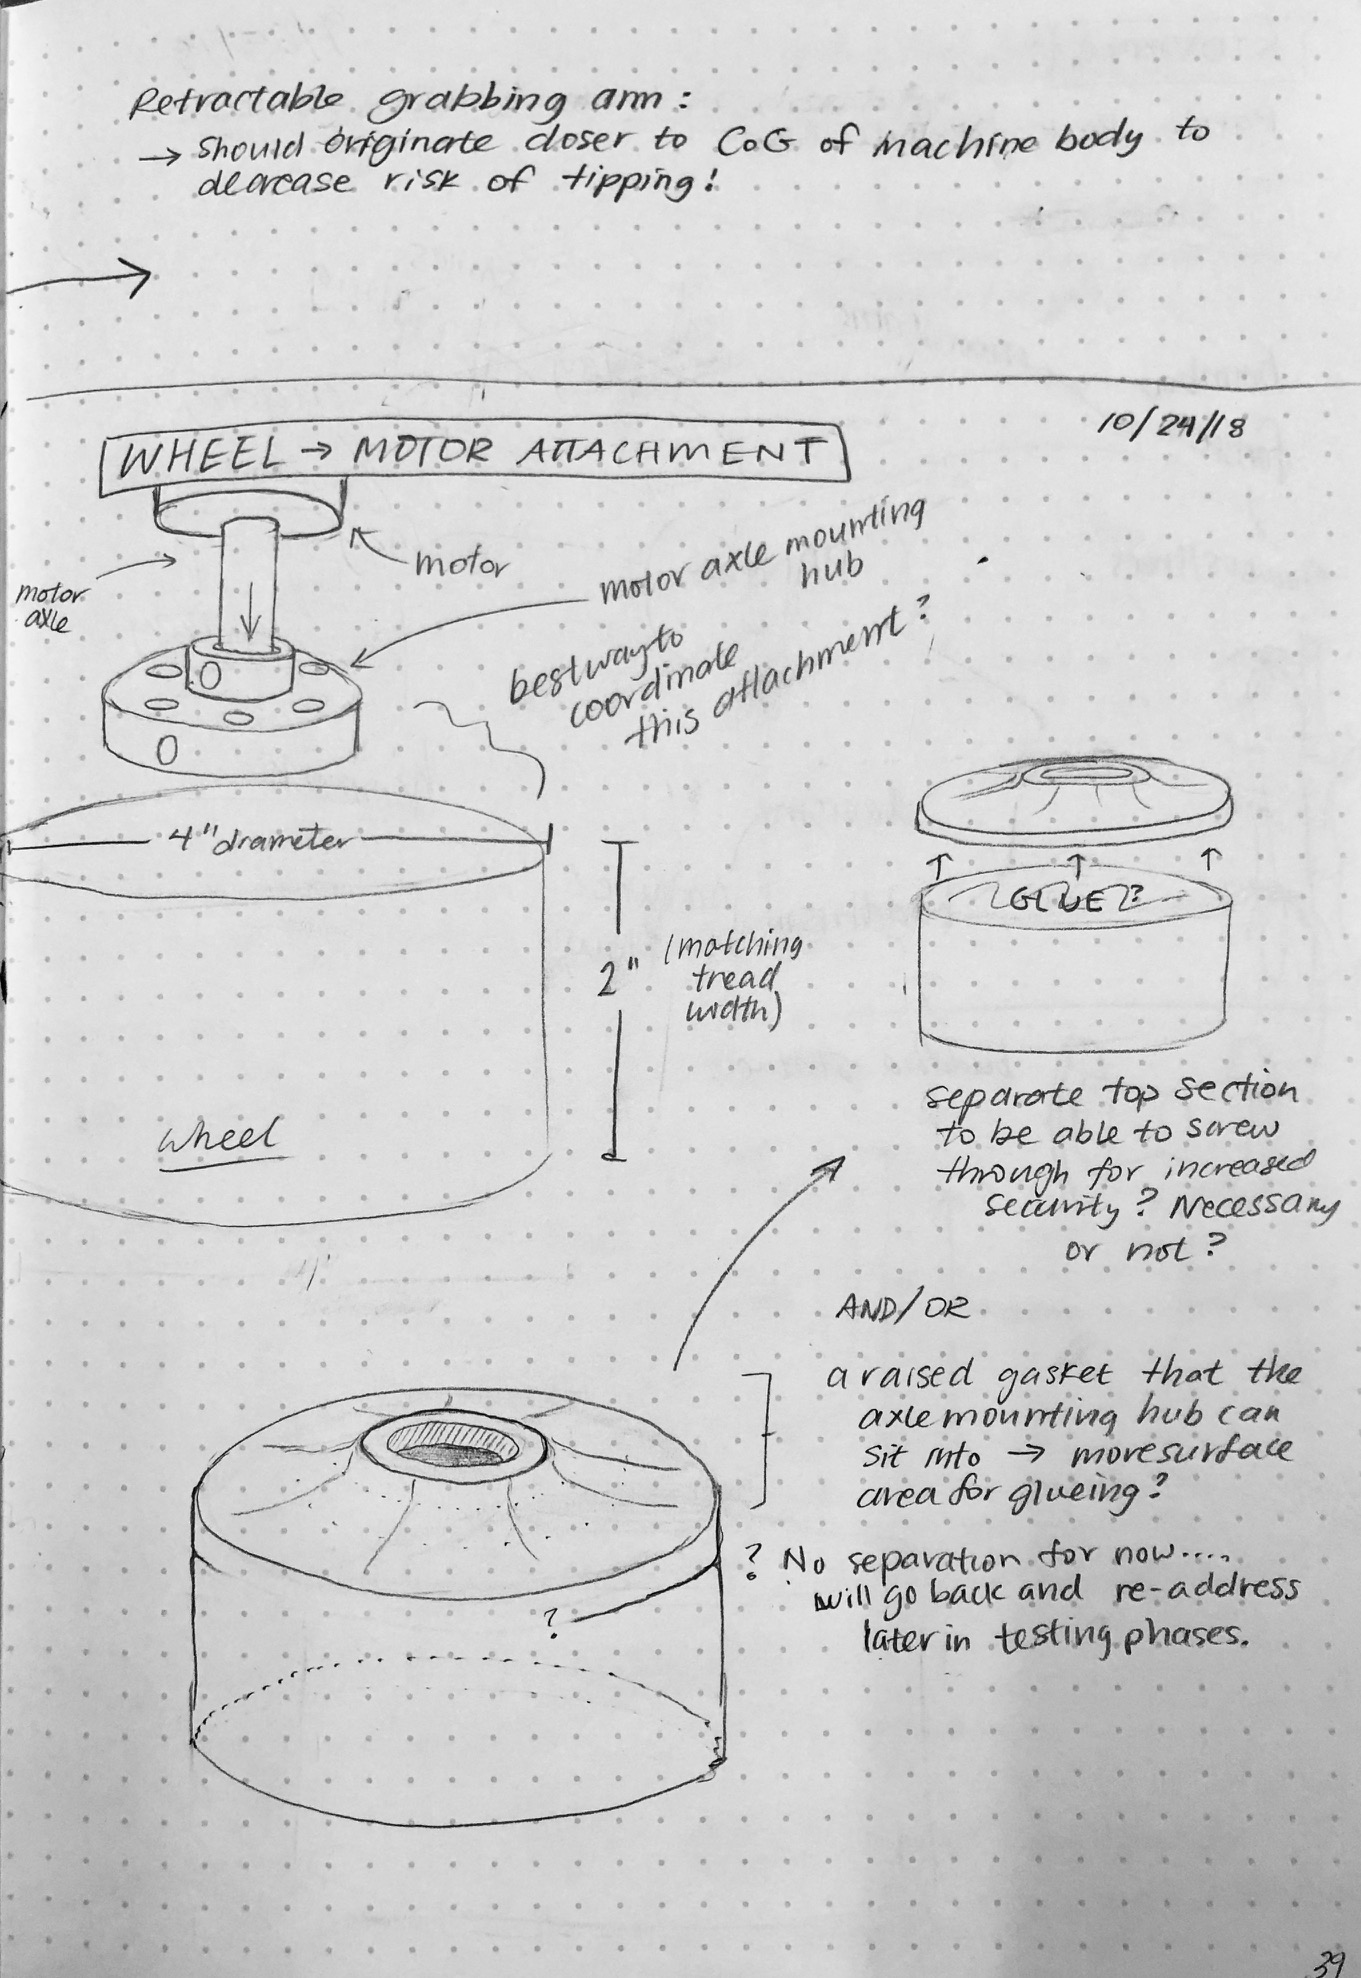 Retractable grabbing arm:
→ Should originate closer to CoG of machine body to
decrease risk of tipping!
10/24/18
WHEEL → MOTOR ATTACHMENT
motor
motor
axle
motor axle mounting
hub
best way to
coordinate
this attachment?
4" diameter
2"
(matching
tread
width)
wheel
GLUE?
separate top section
to be able to screw
through for increased
security? Necessary
or not?
AND/OR
a raised gasket that the
axle mounting hub can
sit into → more surface
area for glueing?
? No separation for now....
will go back and re-address
later in testing phases.
?
39